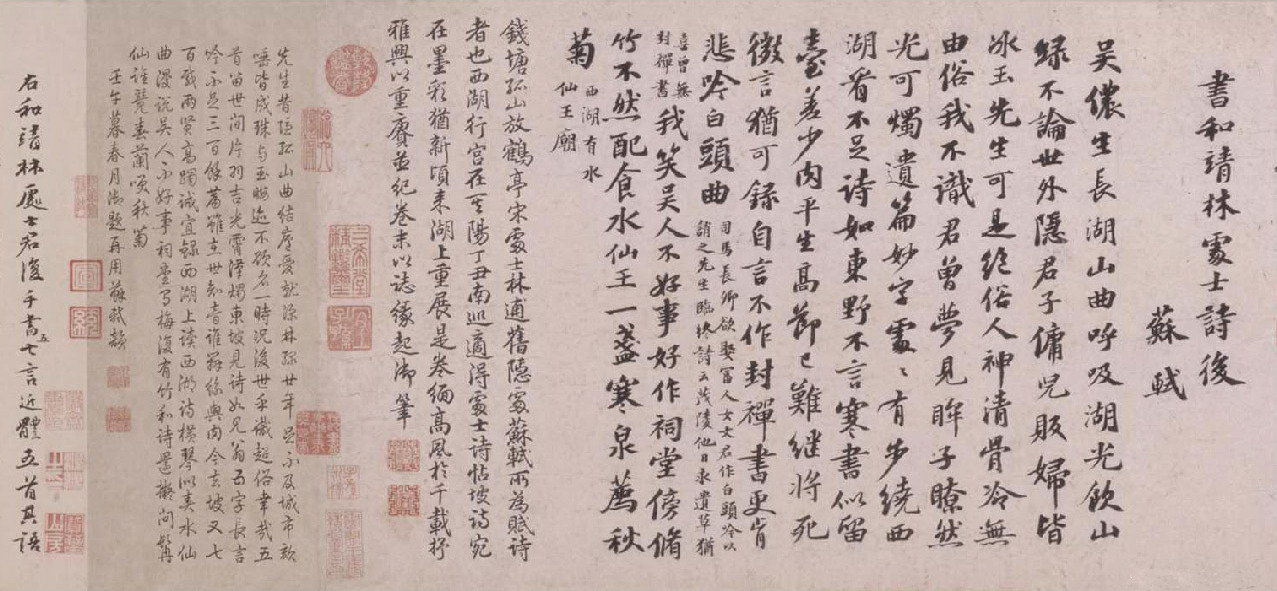 書和靖林處士詩後
蘇軾
吳儂生長湖山曲呼吸湖光飲山
緑不論世外隱君子傭兒販婦皆
冰玉先生可是絕俗人神清骨冷無
由俗我不識君曾夢見眸子瞭然
光可燭遺篇妙字處〻有步繞西
湖看不足詩如東野不言寒書似留
臺差少肉平生高節已難繼將死
微言猶可錄自言不作封禪書更肯
悲吟白頭曲
司馬長卿欲娶富人女文君作白頭吟以
誚之先生臨終詩云茂陵他日求遺草猶
喜曾無
封禪書
我笑吳人不好事好作祠堂傍脩
竹不然配食水仙王一盞寒泉薦秋
菊
西湖有水
仙王廟
錢塘孤山放鶴亭宋處士林逋舊隱處蘇軾所為賦詩
者也西湖行宮在其陽丁丑南巡適得處士詩帖坡詩宛
在墨彩猶新頃來湖上重展是卷緬高風於千載抒
雅興以重賡並紀卷末以誌緣起御筆
先生昔隱孤山曲結廬愛就深林綠廿年足不及城市欬
唾皆成珠与玉晦迹不欲名一時況後世乎誠超俗幸哉五
首留世間片羽吉光雲漢燭東坡見詩如見翁五字長言
吟不足三百餘篇雖世知者誰絲與肉今去坡又七
百載兩賢高躅誠宜錄西湖上讀西湖詩橫琴以奏水仙
曲漫說吳人不好事祠堂有梅復有竹和詩還擬問髯
仙誰薦春蘭嗅秋菊
壬午暮春月御題再用蘇軾韻
右和靖林處士君復手書五七言近體五首其語